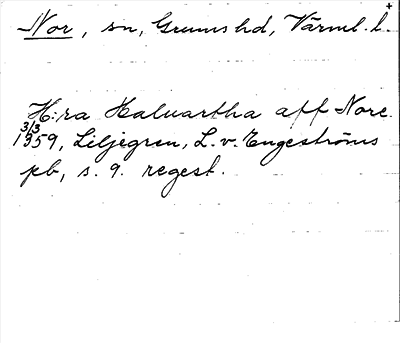 Nor, sn, Grums hd, Värml. l. +
H:ra Haluartha aff Nore.
3/3 1359, Liljegren, L. v. Engeströms
pb, s. 9. regest.